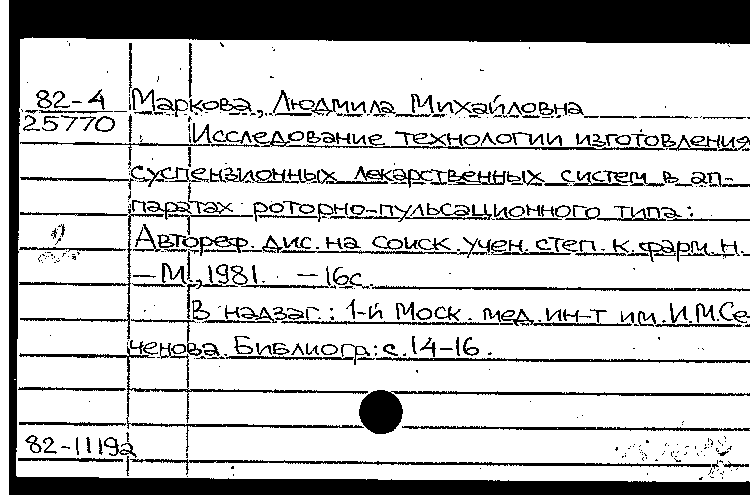 82-4 Маркова, Людмила Михайловна
25770 Исследование технологии изготовления
суспензионных лекарственных систем в ап-
паратах роторно-пульсационного типа:
Автореф. дис. на соиск. учен. степ. к. фарм. н.
— М., 1981. — 16с.
В надзаг.: 1-й Моск. мед. ин-т им. И.М.Се-
ченова. Библиогр.: с. 14-16.
82-1119а